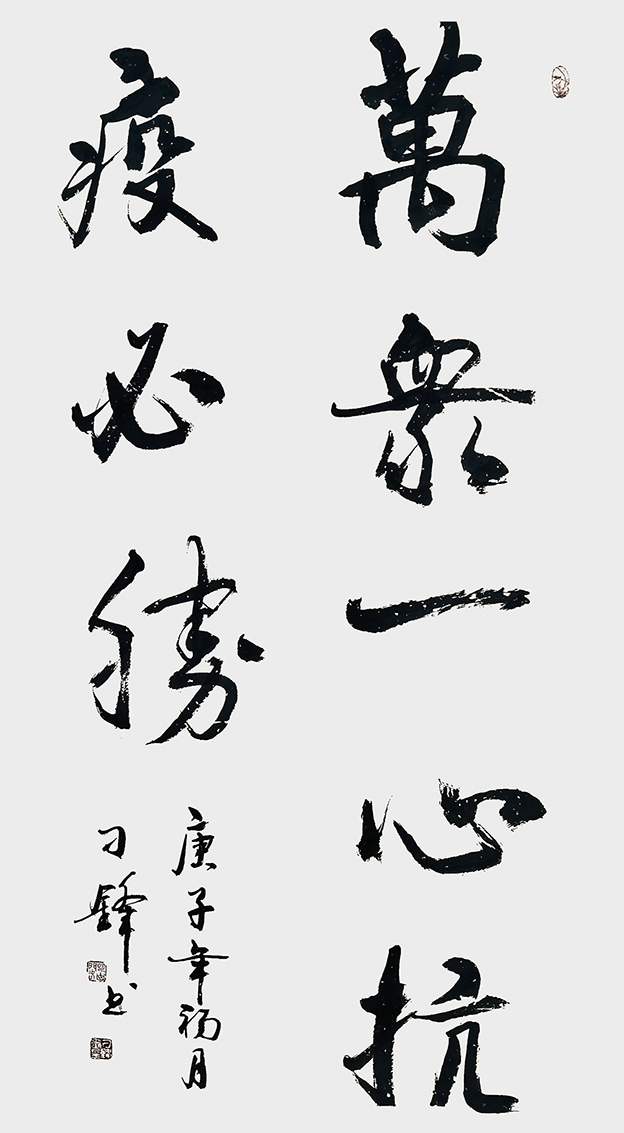 萬衆一心抗
疫必勝
庚子年月
刁鋒书